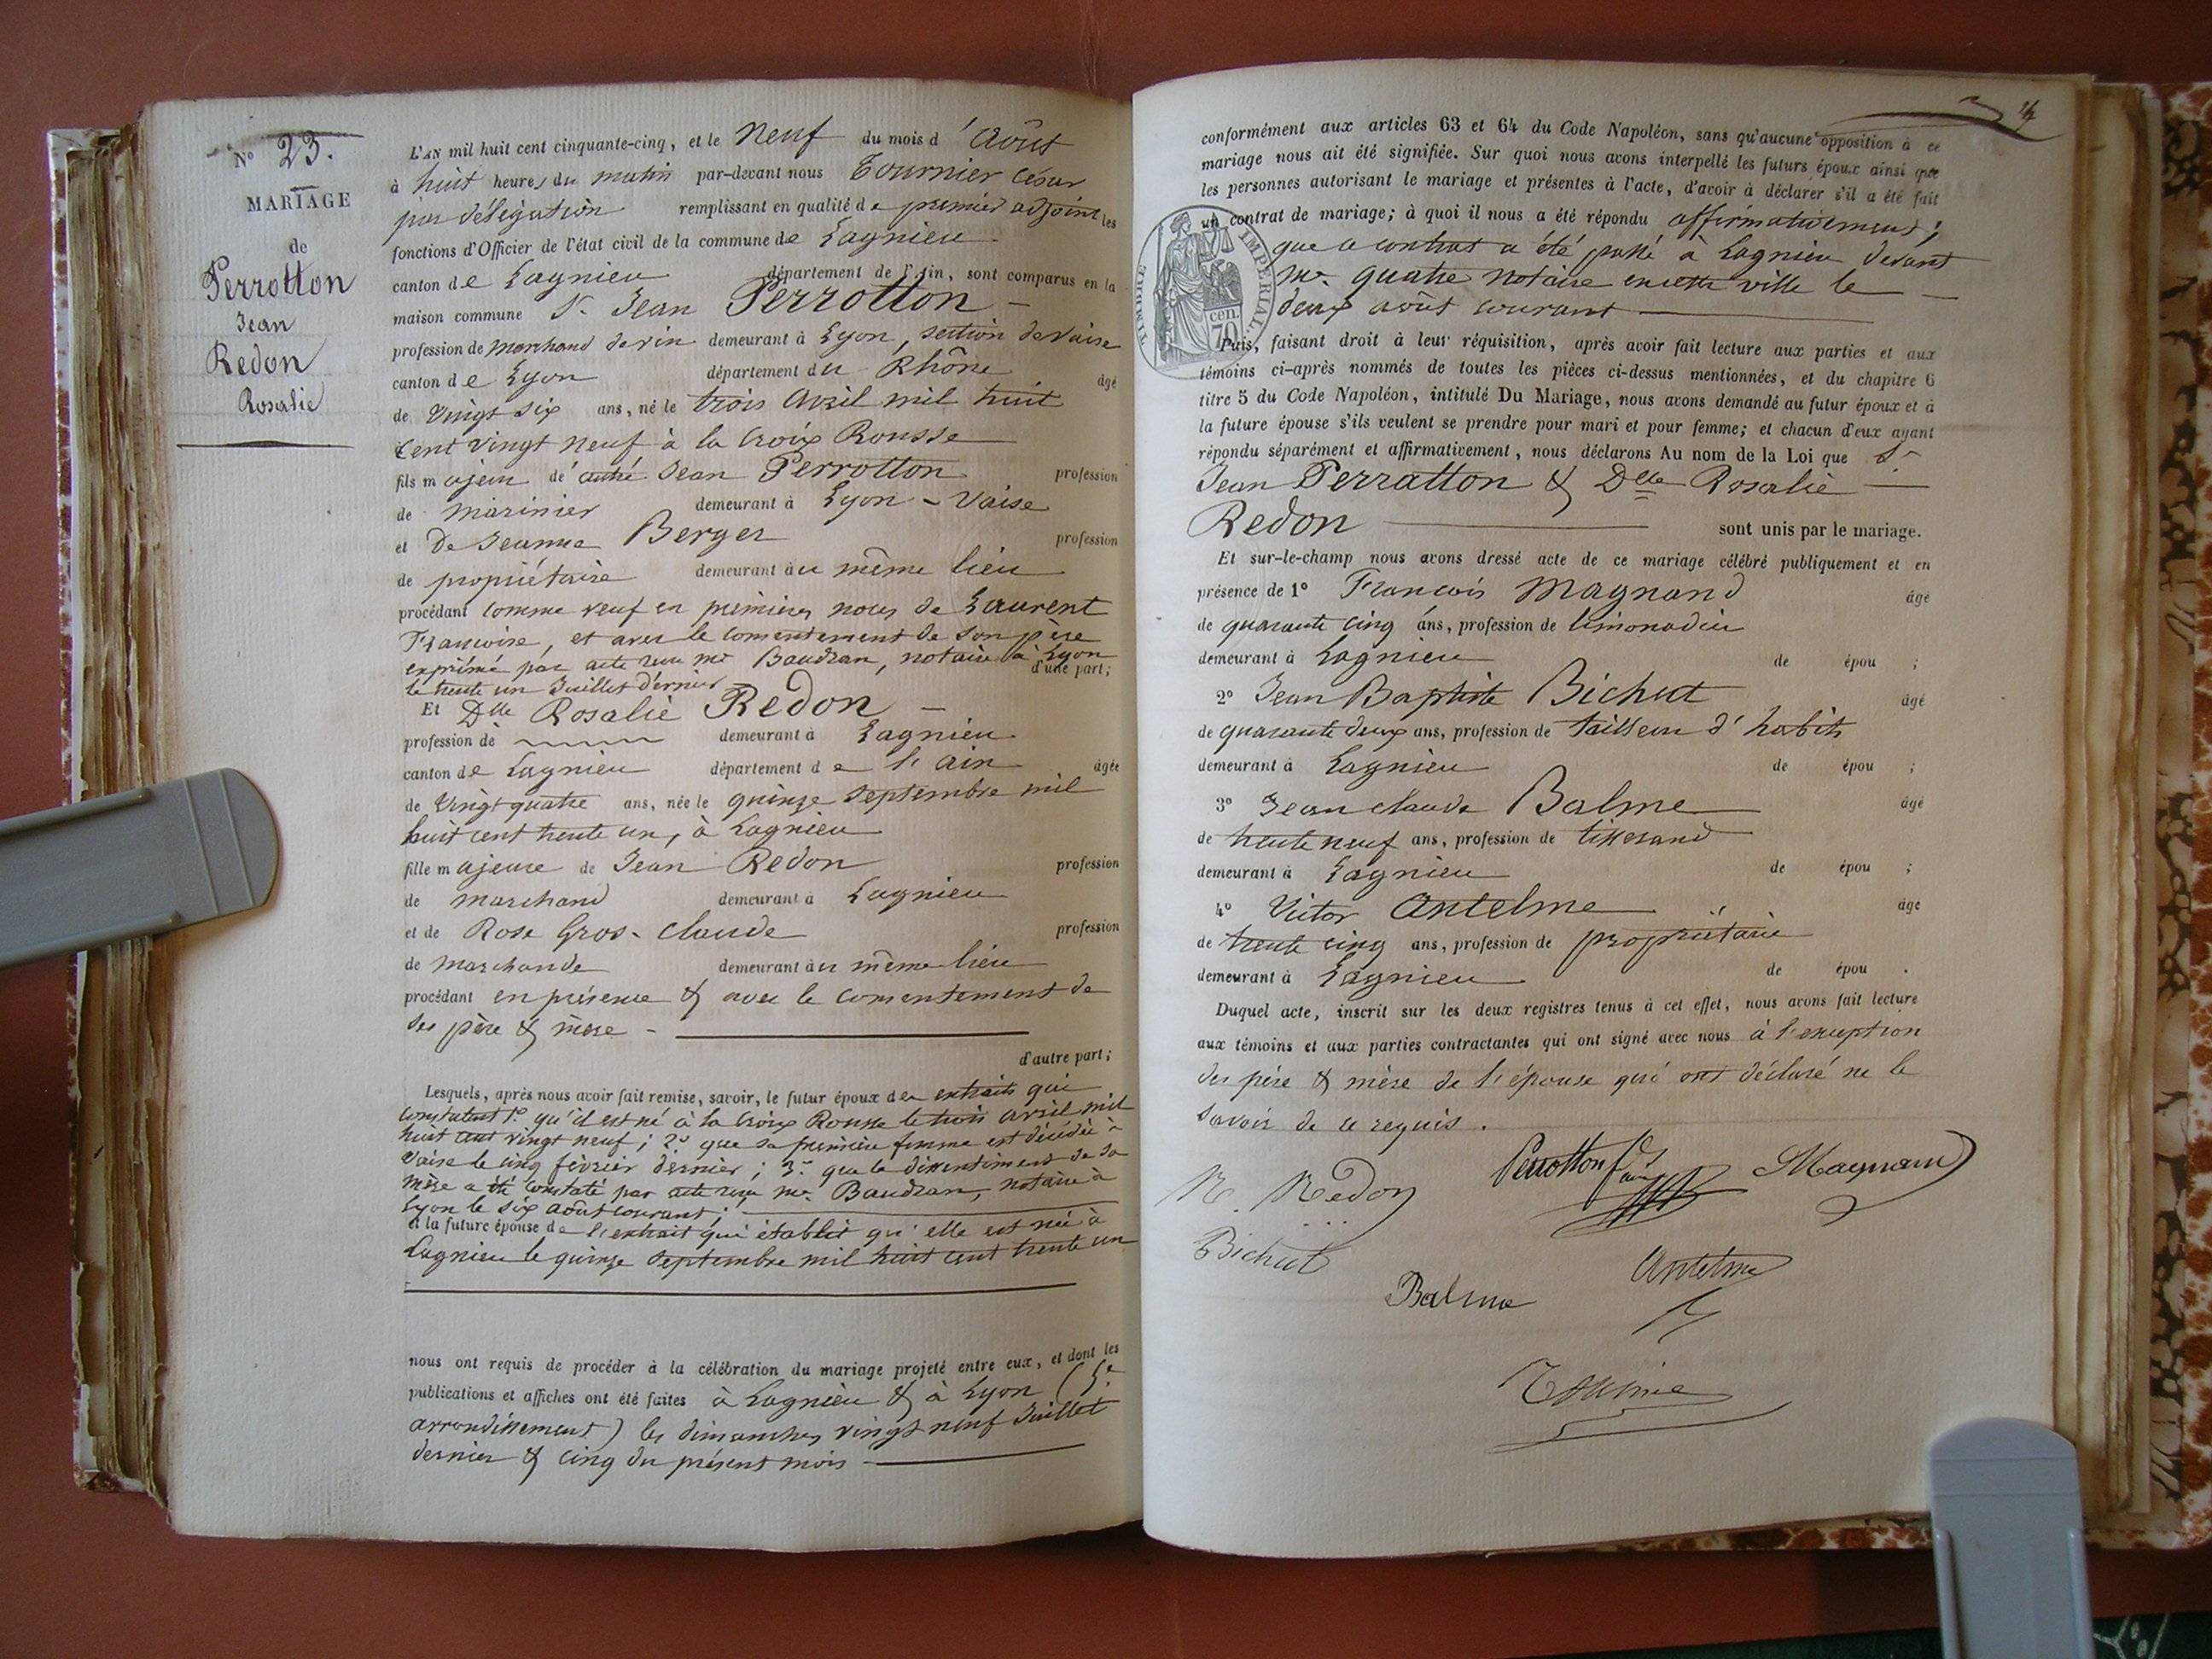 N° 23.
MARIAGE
de
Perrotton
Jean
Redon
Rosalie
L'AN mil huit cent cinquante-cinq, et le Neuf du mois d'Août
à huit heures du matin par-devant nous Tournier César
par délégation remplissant en qualité de premier adjoint les
fonctions d'Officier de l'état civil de la commune de Lagnieu
canton de Lagnieu département de l'Ain, sont comparus en la
maison commune Sr. Jean Perrotton
profession de marchand de vin demeurant à Lyon, section de Vaise
canton de Lyon département du Rhône âgé
de Vingt six ans, né le trois Avril mil huit
cent vingt neuf à la Croix Rousse
fils majeur de Jean Perrotton profession
de marinier demeurant à Lyon - Vaise
et de Jeanne Berger profession
de propriétaire demeurant au même lieu
procédant comme veuf en premières noces de Laurent
Françoise, et avec le consentement de son père
exprimé par acte reçu me Baudran, notaire à Lyon
le trente un Juillet dernier d'une part;
Et Dlle Rosalie Redon
profession de demeurant à Lagnieu
canton de Lagnieu département de l'Ain âgée
de Vingt quatre ans, née le quinze Septembre mil
huit cent trente un, à Lagnieu
fille majeure de Jean Redon profession
de marchand demeurant à Lagnieu
et de Rose Gros-Claude profession
de marchande demeurant au même lieu
procédant en présence & avec le consentement de
ses père & mère -
d'autre part;
Lesquels, après nous avoir fait remise, savoir, le futur époux des extraits qui
constatent 1° qu'il est né à la Croix Rousse le trois avril mil
huit cent vingt neuf; 2° que sa première femme est décédée à
Vaise le cinq février dernier; 3° que le dissentiment de sa
mère a été constaté par acte reçu me Baudran, notaire à
Lyon le six août courant;
et la future épouse de l'extrait qui établit qu'elle est née à
Lagnieu le quinze Septembre mil huit cent trente un
nous ont requis de procéder à la célébration du mariage projeté entre eux, et dont les
publications et affiches ont été faites à Lagnieu & à Lyon (5e
arrondissement) les dimanches vingt neuf Juillet
dernier & cinq du présent mois
conformément aux articles 63 et 64 du Code Napoléon, sans qu'aucune opposition à ce
mariage nous ait été signifiée. Sur quoi nous avons interpellé les futurs époux ainsi que
les personnes autorisant le mariage et présentes à l'acte, d'avoir à déclarer s'il a été fait
un contrat de mariage; à quoi il nous a été répondu affirmativement;
que ce contrat a été passé à Lagnieu devant
me. Quatre notaire en cette ville le
deux août courant
TIMBRE IMPERIAL
70 cen.
Puis, faisant droit à leur réquisition, après avoir fait lecture aux parties et aux
témoins ci-après nommés de toutes les pièces ci-dessus mentionnées, et du chapitre 6
titre 5 du Code Napoléon, intitulé Du Mariage, nous avons demandé au futur époux et à
la future épouse s'ils veulent se prendre pour mari et pour femme; et chacun d'eux ayant
répondu séparément et affirmativement, nous déclarons Au nom de la Loi que Sr
Jean Perratton & Dlle Rosalie
Redon sont unis par le mariage.
Et sur-le-champ nous avons dressé acte de ce mariage célébré publiquement et en
présence de 1° François Magnand âgé
de quarante cinq ans, profession de limonadier
demeurant à Lagnieu de épou ;
2° Jean Baptiste Bichut âgé
de quarante deux ans, profession de tailleur d'habits
demeurant à Lagnieu de épou ;
3° Jean Claude Balme âgé
de trente neuf ans, profession de tisserand
demeurant à Lagnieu de épou ;
4° Victor Antelme âgé
de trente cinq ans, profession de propriétaire
demeurant à Lagnieu de épou .
Duquel acte, inscrit sur les deux registres tenus à cet effet, nous avons fait lecture
aux témoins et aux parties contractantes qui ont signé avec nous à l'exception
des père & mère de l'épouse qui ont déclaré ne le
savoir de ce requis.
R. Redon Perrotton fils Magnand
Bichut Antelme
Balme